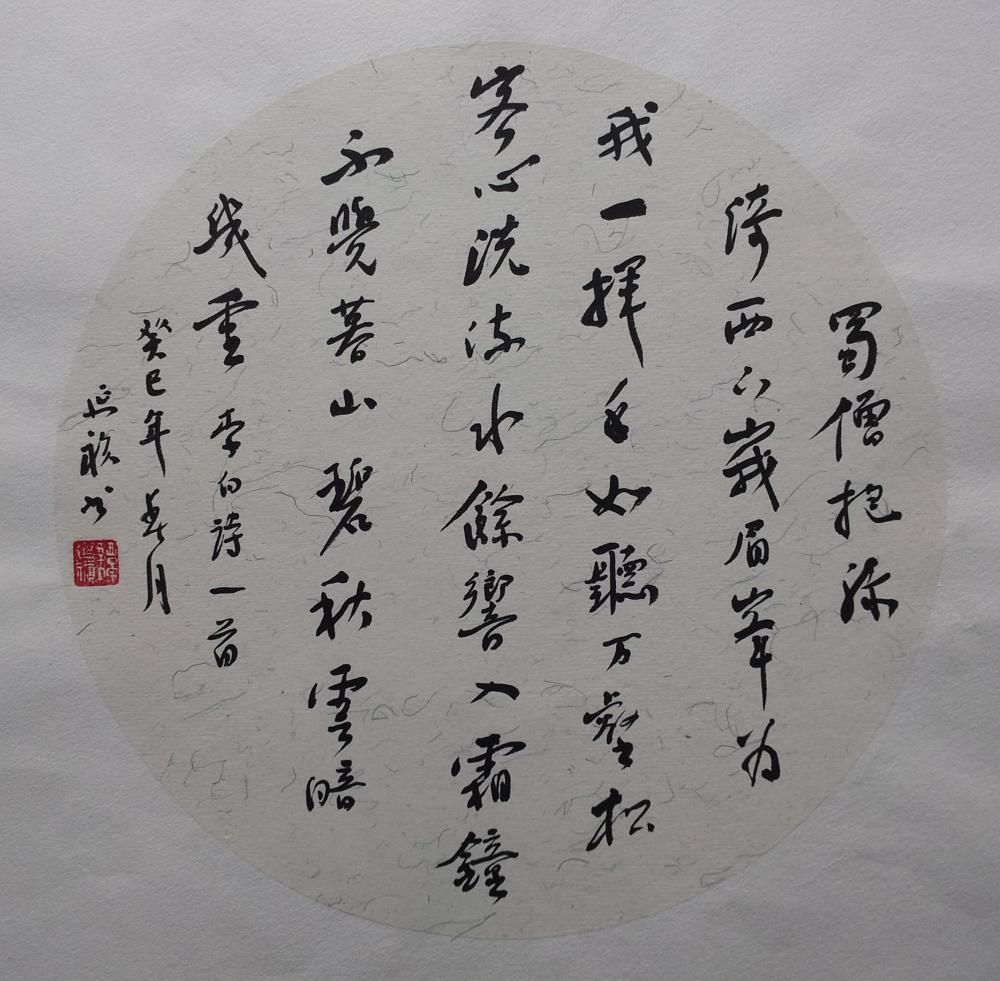 蜀僧抱綠
綺西下峩眉峯為
我一揮手如聽万壑松
客心洗流水餘響入霜鐘
不覺暮山碧秋雲暗
幾重 李白詩一首
癸巳年春月